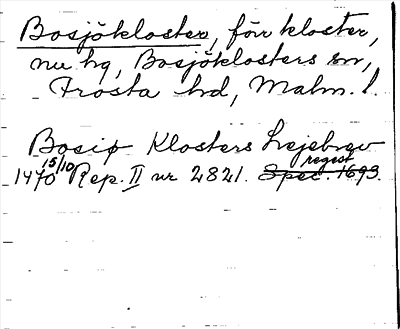 Bosjökloster, förr kloster,
nu hg, Bosjöklosters sn,
Frosta hd, Malm. l.
Bosiø Klosters Lejebrev
1470 15/10 Rep. II nr 2821. Spec. 1693. regest